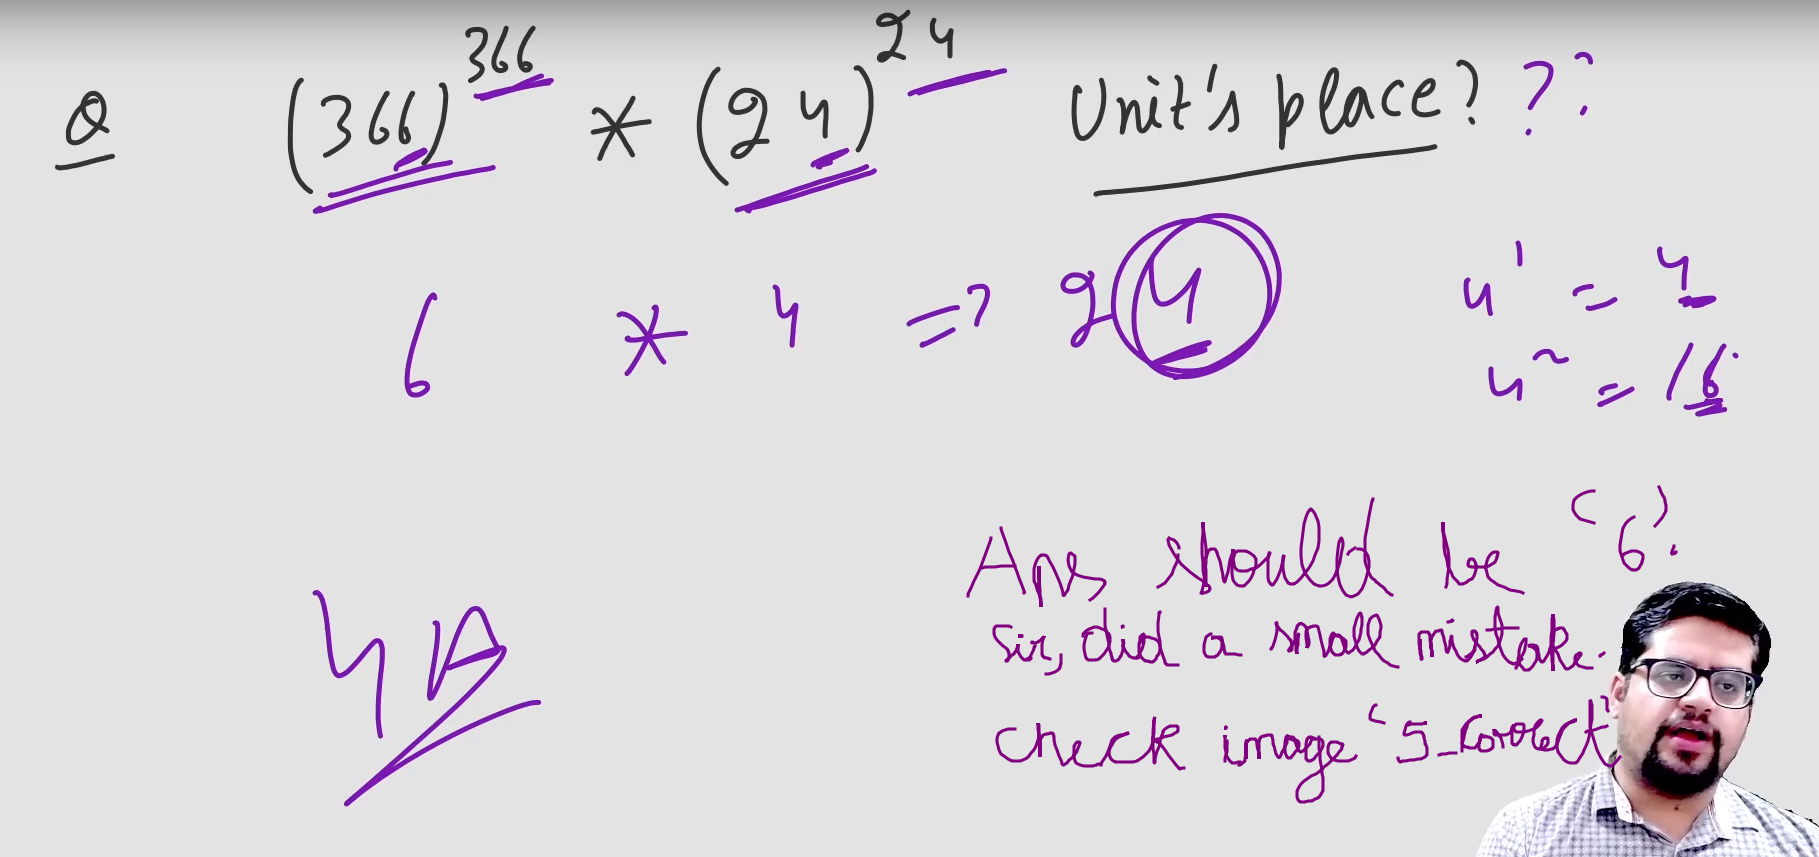 Q (366)^366 * (24)^24 Unit's place? ??
6 * 4 => 24
4^1 = 4
4^2 = 16
4 A
Ans should be '6'.
Sir, did a small mistake.
check image '5_correct'